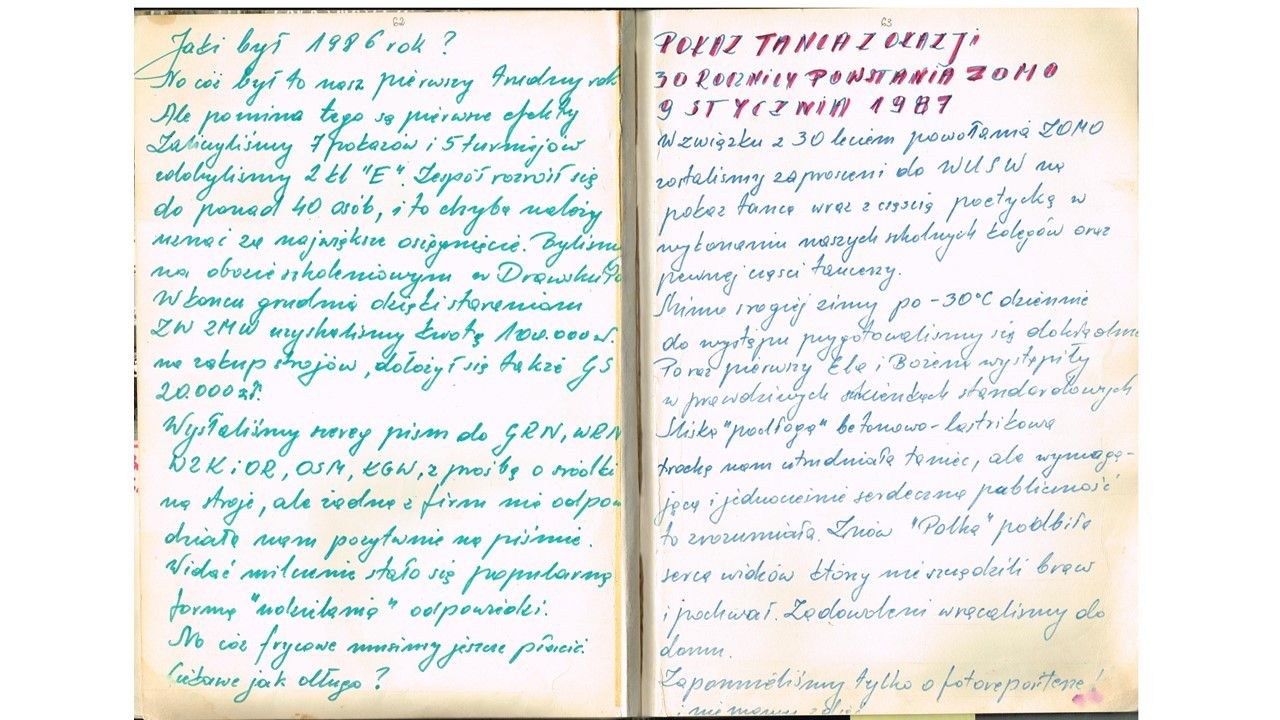 62
Jaki był 1986 rok?
No cóż był to nasz pierwszy trudny rok
Ale pomimo tego są pierwsze efekty
Zaliczyliśmy 7 pokazów i 5 turniejów
zdobyliśmy 2 kl "E". Zespół rozrósł się
do ponad 40 osób, i to chyba należy
uznać za największe osiągnięcie. Byliśmy
na obozie szkoleniowym w Drawsku
W końcu grudnia dzięki staraniom
ZW ZMW uzyskaliśmy kwotę 100.000 zł.
na zakup strojów, dołożył się także GS
20.000 zł.
Wysłaliśmy szereg pism do GRN, WRN
WZKiOR, OSM, KGW, z prośbą o środki
na stroje, ale żadna z firm nie odpo
działa nam pozytywnie na piśmie.
Widać milczenie stało się popularną
formą "udzielania" odpowiedzi.
No cóż frycowe musimy jeszcze płacić.
Ciekawe jak długo?
63
POKAZ TAŃCA Z OKAZJI
30 ROCZNICY POWSTANIA ZOMO
9 STYCZNIA 1987
W związku z 30 leciem powołania ZOMO
zostaliśmy zaproszeni do WUSW na
pokaz tańca wraz z częścią poetycką w
wykonaniu naszych szkolnych kolegów oraz
pewnej części tancerzy.
Mimo srogiej zimy po -30°C dziennie
do występu przygotowaliśmy się dokładnie
Po raz pierwszy Ela i Bożena wystąpiły
w prawdziwych sukienkach standardowych
Śliska "podłoga" betonowo-lastrikowa
trochę nam utrudniała taniec, ale wymaga-
jąca i jednocześnie serdeczna publiczność
to zrozumiała. Znów "Polka" podbiła
serca widzów który nie szczędzili braw
i pochwał. Zadowoleni wracaliśmy do
domu.
Zapomnieliśmy tylko o fotoreporterze!
i nie mamy zdjęć